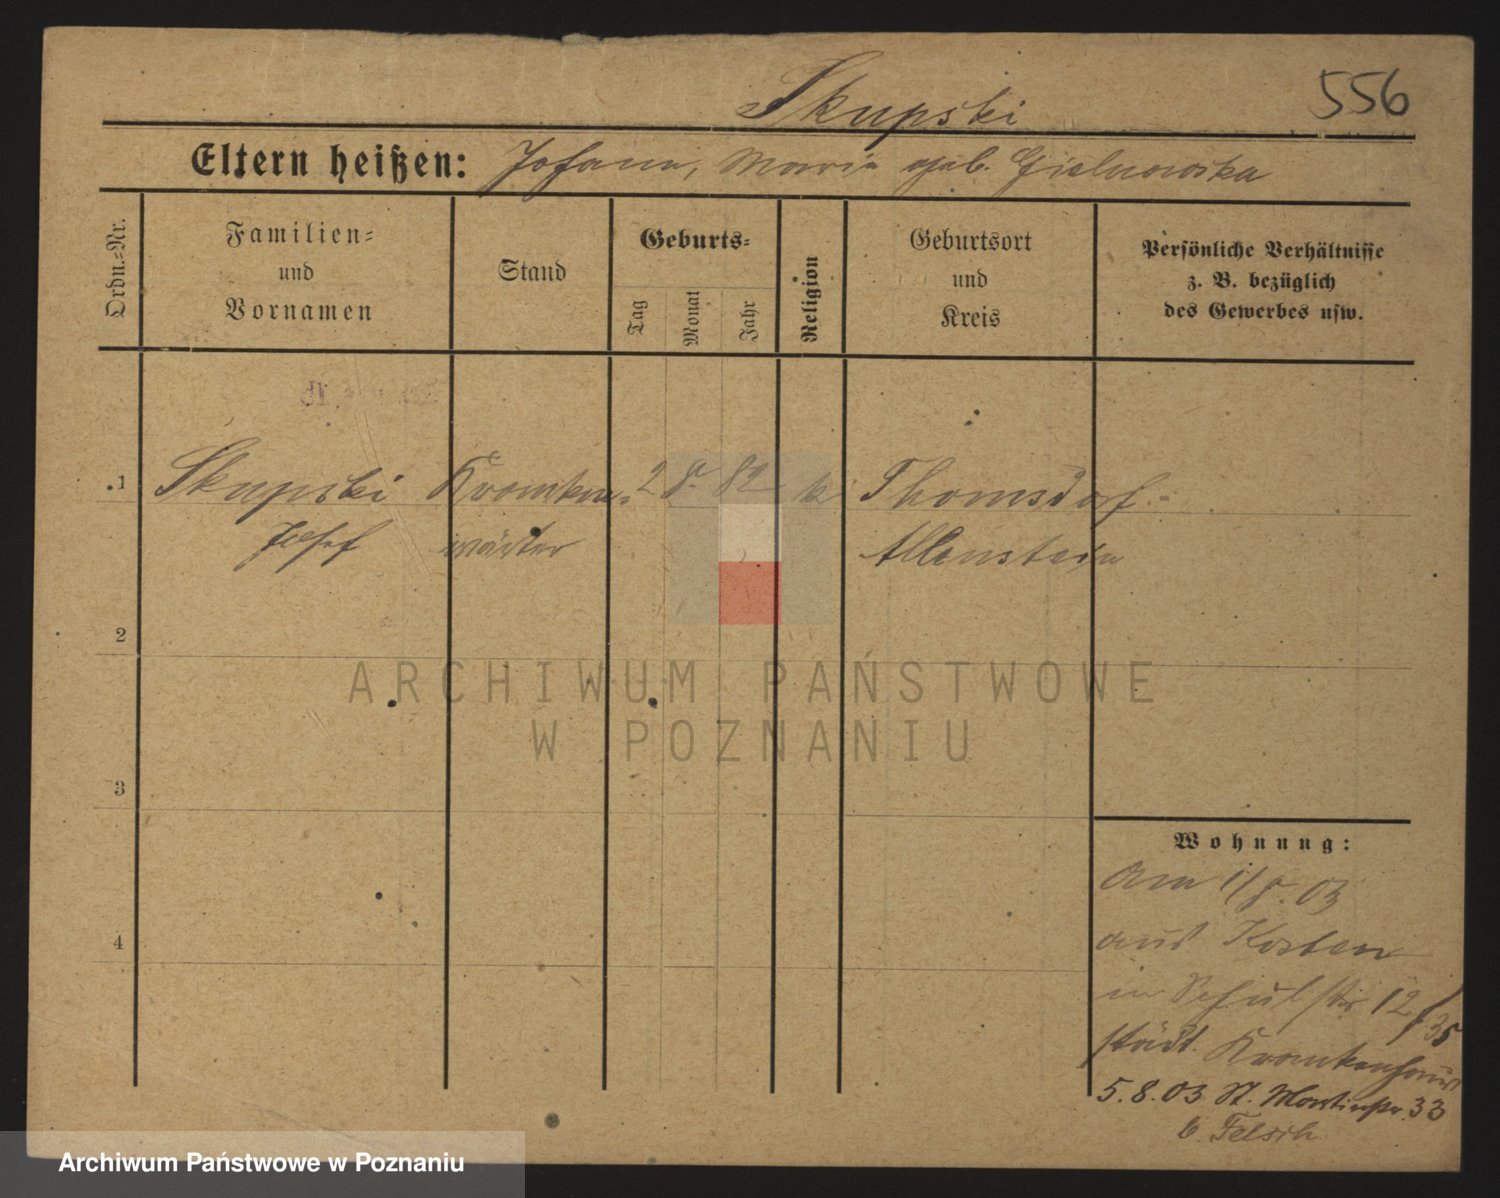 556
Skupski
Eltern heißen: Johann, Maria geb. Gielnowska
Ordn.-Nr.
Familien-
und
Vornamen
Stand
Geburts-
Tag
Monat
Jahr
Religion
Geburtsort
und
Kreis
Persönliche Verhältnisse
z. B. bezüglich
des Gewerbes usw.
1 Skupski Kranken- 2 8 82 k Thomsdorf-
Josef wärter Allenstein
2
3
4
Wohnung:
Am 1/8. 03
aus Kosten
in Schulstr 12/35
städt. Krankenhaus
5.8.03 St. Martinstr. 33
b. Felsch
ARCHIWUM PAŃSTWOWE
W POZNANIU
Archiwum Państwowe w Poznaniu